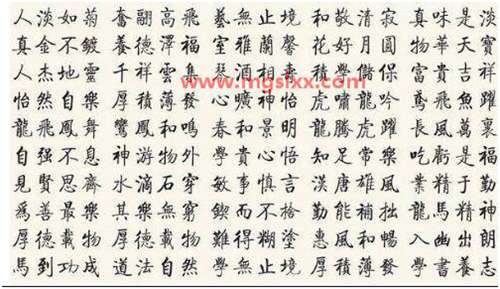 人淡如菊 奮翮高飛 藝無止境 和敬清寂 真味是淡
真金不鍍 養德澤福 室雅蘭馨 花好月圓 物華天寶
人杰地靈 千祥雲集 積學儲 富貴吉祥
www.mgslxx.com
怡然自樂 厚積薄發 心曠神怡 虎嘯龍吟 鳶飛魚躍
龍飛鳳舞 鸞鳳和鳴 春和景明 龍騰虎躍 長風萬裏
自强不息 神游物外 學貴心悟 知足常樂 吃虧是福
見賢思齊 水滴石穿 敏事慎言 漢唐雄風 業精于勤
爲善最樂 其樂無窮 鍥而不捨 勤能補拙 龍馬精神
厚德載物 難得糊塗 惠風和暢 入幽出朗
馬到功成 道法自然 學無止境 厚積薄發 學書養志